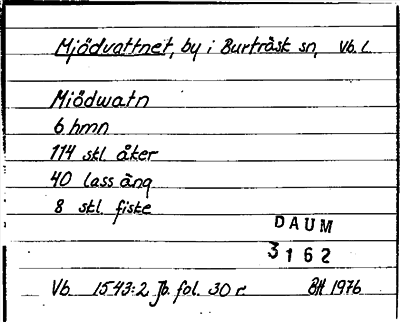 Mjödvattnet, by i Burträsk sn, Vb. l.
Miödwatn
6 hmn
114 skl åker
40 lass äng
8 skl. fiske
DAUM
3162
Vb. 1543:2 Jb. fol. 30 r. BH 1976